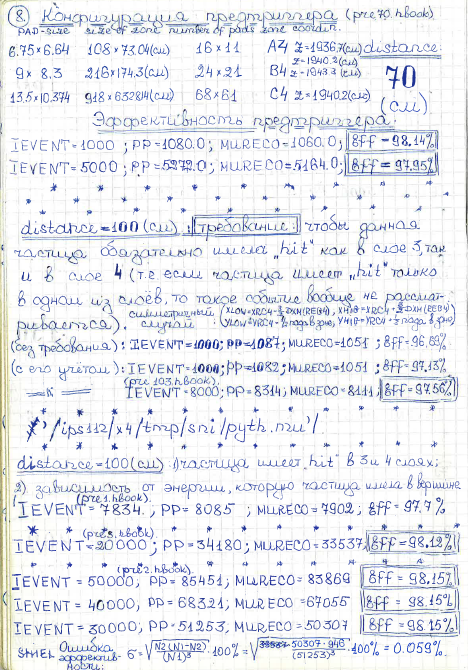 8. Конфигурация предтриггера (pre70.hbook)
PAD-size size of zone number of pads zone coordin.
6.75×6.64 108×73.04(см) 16×11 A4 z=1936.7(см) distance:
9×8.3 216×174.3(см) 24×21 B4 z=1940.2(см) z=1943.3(см) 70
13.5×10.374 918×632.814(см) 68×61 C4 z=1940.2(см) (см)
Эффективность предтриггера:
IEVENT=1000; PP=1080.0; MURECO=1060.0; Eff=98.14%
IEVENT=5000; PP=5272.0; MURECO=5164.0; Eff=97.95%
* * * * * * * * *
distance=100(см): требование: чтобы данная
частица обязательно имела "hit" как в слое 3, так
и в слое 4 (т.е если частица имеет "hit" только
в одном из слоёв, то такое событие вообще не рассмат-
ривается). симметричный случай
(без требования): IEVENT=1000; PP=1087; MURECO=1051; Eff=96,69%
(с его учётом): IEVENT=1000; PP=1082; MURECO=1051; Eff=97,13%
(pre103.hbook).
IEVENT=8000; PP=8314; MURECO=8111; Eff=97.56%
* * * * * * * * *
/ips112/x4/tmp/sni/pyth.mu/.
* * * * * * * * *
distance=100(см): 1) частица имеет "hit" в 3 и 4 слоях;
2) зависимость от энергии, которую частица имела в вершине
(pre1.hbook).
IEVENT=7834.; PP=8085; MURECO=7902; Eff=97.7%
(pre3.hbook)
IEVENT=20000; PP=34180; MURECO=33537; Eff=98.12%
(pre2.hbook).
IEVENT=50000; PP=85451; MURECO=83869; Eff=98.15%
IEVENT=40000; PP=68321; MURECO=67055; Eff=98.15%
IEVENT=30000; PP=51253; MURECO=50307; Eff=98.15%
Ошибка σ=√N2(N1-N2)/(N1)³ 100%=√50307·946/(51253)³ 100%=0.059%.
эффектив-
ность: